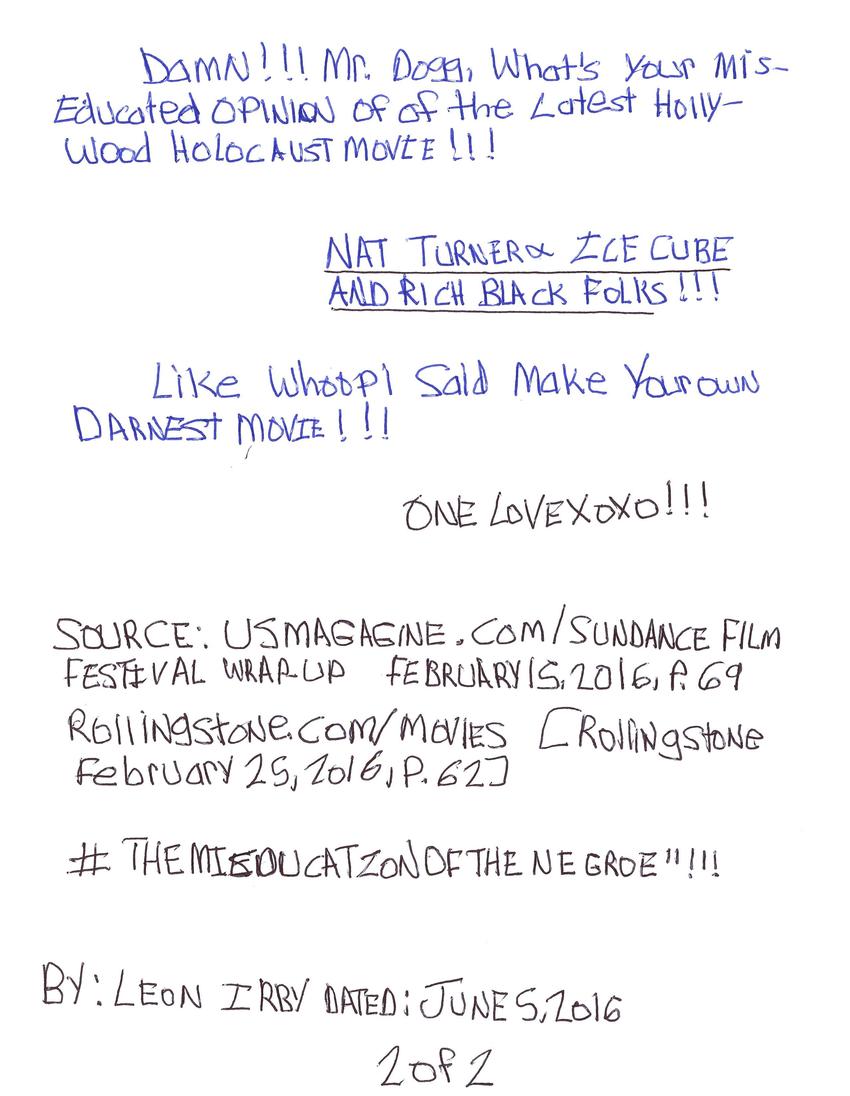 DAMN!!! Mr. Dogg, What's Your Mis-
Educated OPINION OF OF the Latest Holly-
Wood HOLOCAUST MOVIE!!!
NAT TURNER∝ ICE CUBE
AND RICH BLACK FOLKS!!!
Like Whoopi Said Make Your own
DARNEST MOVIE!!!
ONE LOVEXOXO!!!
SOURCE: USMAGAGINE.COM/SUNDANCE FILM
FESTIVAL WRAP-UP FEBRUARY 15, 2016, P. 69
Rollingstone.com/MOVIES [Rollingstone
February 25, 2016, P. 62]
# THEMISEDUCATIONOFTHE NEGROE"!!!
BY: LEON IRBY DATED: JUNE 5, 2016
2 of 2